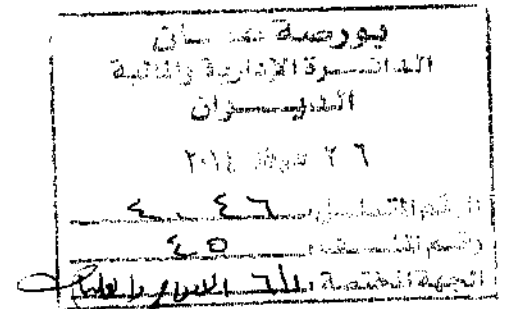 بورصة عمان
الدائرة الإدارية والمالية
الديوان
٢٦ ٢٠١٤
الرقم المتسلسل: ٤٠٤٦
رقم الملف: ٤٥
الجهة المختصة: